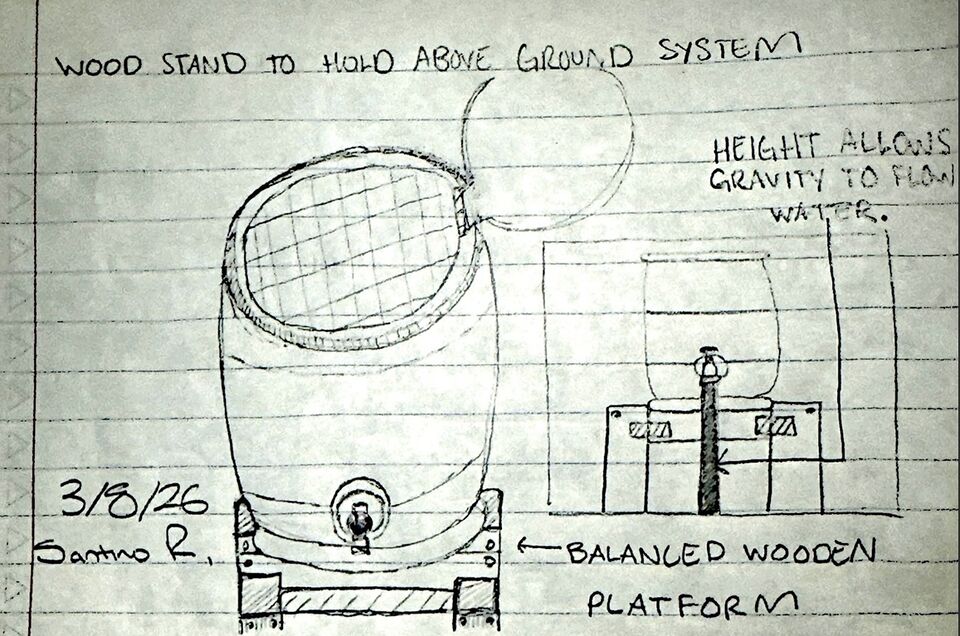 WOOD STAND TO HOLD ABOVE GROUND SYSTEM
HEIGHT ALLOWS
GRAVITY TO FLOW
WATER.
3/8/26
Santino R.
BALANCED WOODEN
PLATFORM